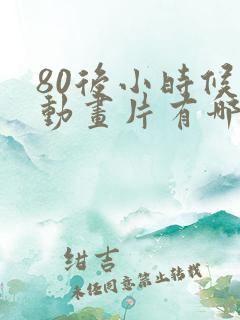 80後小時候
動畫片有哪
紺吉
未任同意禁止转载